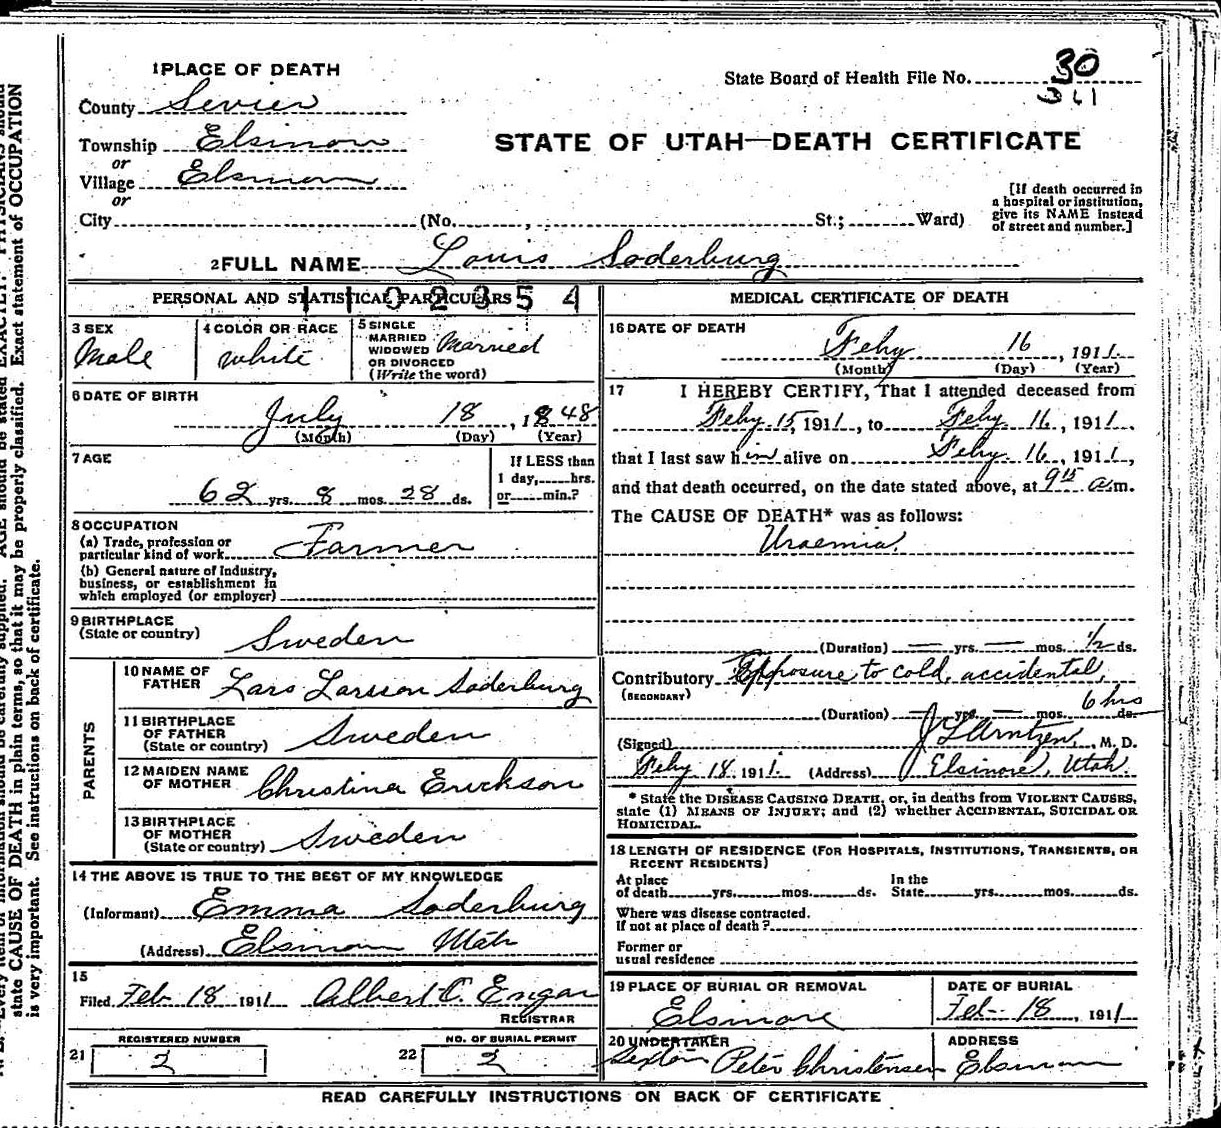 1 PLACE OF DEATH
State Board of Health File No. 30
County Sevier
361
Township Elsinore
STATE OF UTAH—DEATH CERTIFICATE
or
Village Elsinore
or
City (No. , St.; Ward)
[If death occurred in
a hospital or institution,
give its NAME instead
of street and number.]
2 FULL NAME Louis Soderburg
PERSONAL AND STATISTICAL PARTICULARS
1102354
3 SEX
Male
4 COLOR OR RACE
white
5 SINGLE
MARRIED
WIDOWED
OR DIVORCED
(Write the word)
Married
6 DATE OF BIRTH
July 18, 1848
(Month) (Day) (Year)
7 AGE
62 yrs. 8 mos. 28 ds.
If LESS than
1 day, hrs.
or min.?
8 OCCUPATION
(a) Trade, profession or
particular kind of work Farmer
(b) General nature of industry,
business, or establishment in
which employed (or employer)
9 BIRTHPLACE
(State or country) Sweden
PARENTS
10 NAME OF
FATHER Lars Larsson Soderburg
11 BIRTHPLACE
OF FATHER
(State or country) Sweden
12 MAIDEN NAME
OF MOTHER Christina Erickson
13 BIRTHPLACE
OF MOTHER
(State or country) Sweden
14 THE ABOVE IS TRUE TO THE BEST OF MY KNOWLEDGE
(Informant) Emma Soderburg
(Address) Elsinore Utah
15
Filed Feb 18 1911 Albert C.
REGISTRAR
REGISTERED NUMBER
21 2
NO. OF BURIAL PERMIT
22 2
MEDICAL CERTIFICATE OF DEATH
16 DATE OF DEATH
Feby 16, 1911.
(Month) (Day) (Year)
17 I HEREBY CERTIFY, That I attended deceased from
Feby 15, 1911, to Feby. 16, 1911.
that I last saw him alive on Feby. 16, 1911,
and that death occurred, on the date stated above, at 9 15 a.m.
The CAUSE OF DEATH* was as follows:
Uraemia.
(Duration) — yrs. — mos. ½ ds.
Contributory Exposure to cold, accidental,
(SECONDARY)
6 hrs
(Duration) — yrs. — mos. ds.
(Signed) J L Arntzen, M. D.
Feby 18 1911. (Address) Elsinore, Utah.
* State the DISEASE CAUSING DEATH, or, in deaths from VIOLENT CAUSES,
state (1) MEANS OF INJURY; and (2) whether ACCIDENTAL, SUICIDAL OR
HOMICIDAL.
18 LENGTH OF RESIDENCE (FOR HOSPITALS, INSTITUTIONS, TRANSIENTS, OR
RECENT RESIDENTS)
At place
of death yrs. mos. ds.
In the
State yrs. mos. ds.
Where was disease contracted.
If not at place of death?
Former or
usual residence
19 PLACE OF BURIAL OR REMOVAL
Elsinore
DATE OF BURIAL
Feb- 18, 1911
20 UNDERTAKER
Sexton Peter Christensen
ADDRESS
Elsinore
READ CAREFULLY INSTRUCTIONS ON BACK OF CERTIFICATE
state CAUSE OF DEATH in plain terms, so that it may be properly classified. Exact statement of OCCUPATION
is very important. See instructions on back of certificate.